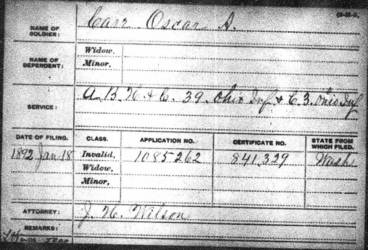 NAME OF SOLDIER: Carr Oscar A.
NAME OF DEPENDENT: Widow,
Minor,
SERVICE: A. B. H & E. 39. Ohio Inf & C 3. Ohio Inf
DATE OF FILING. CLASS. APPLICATION NO. CERTIFICATE NO. STATE FROM WHICH FILED.
1892 Jan 18 Invalid, 1085262 841,329 Wash
Widow,
Minor,
ATTORNEY: J. H. Wilson
REMARKS: